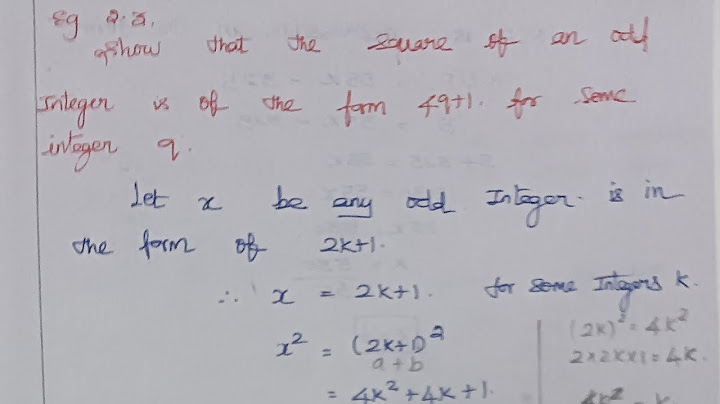 Eg 2.3.
Show that the square of an odd
Integer is of the form 4q+1. for some
integer q.
Let x be any odd Integer. is in
the form of 2k+1.
∴ x = 2k+1. for some Integers k.
x² = (2k+1)²
a+b
= 4k²+4k+1.
(2k)² = 4k²
2×2k×1 = 4k.